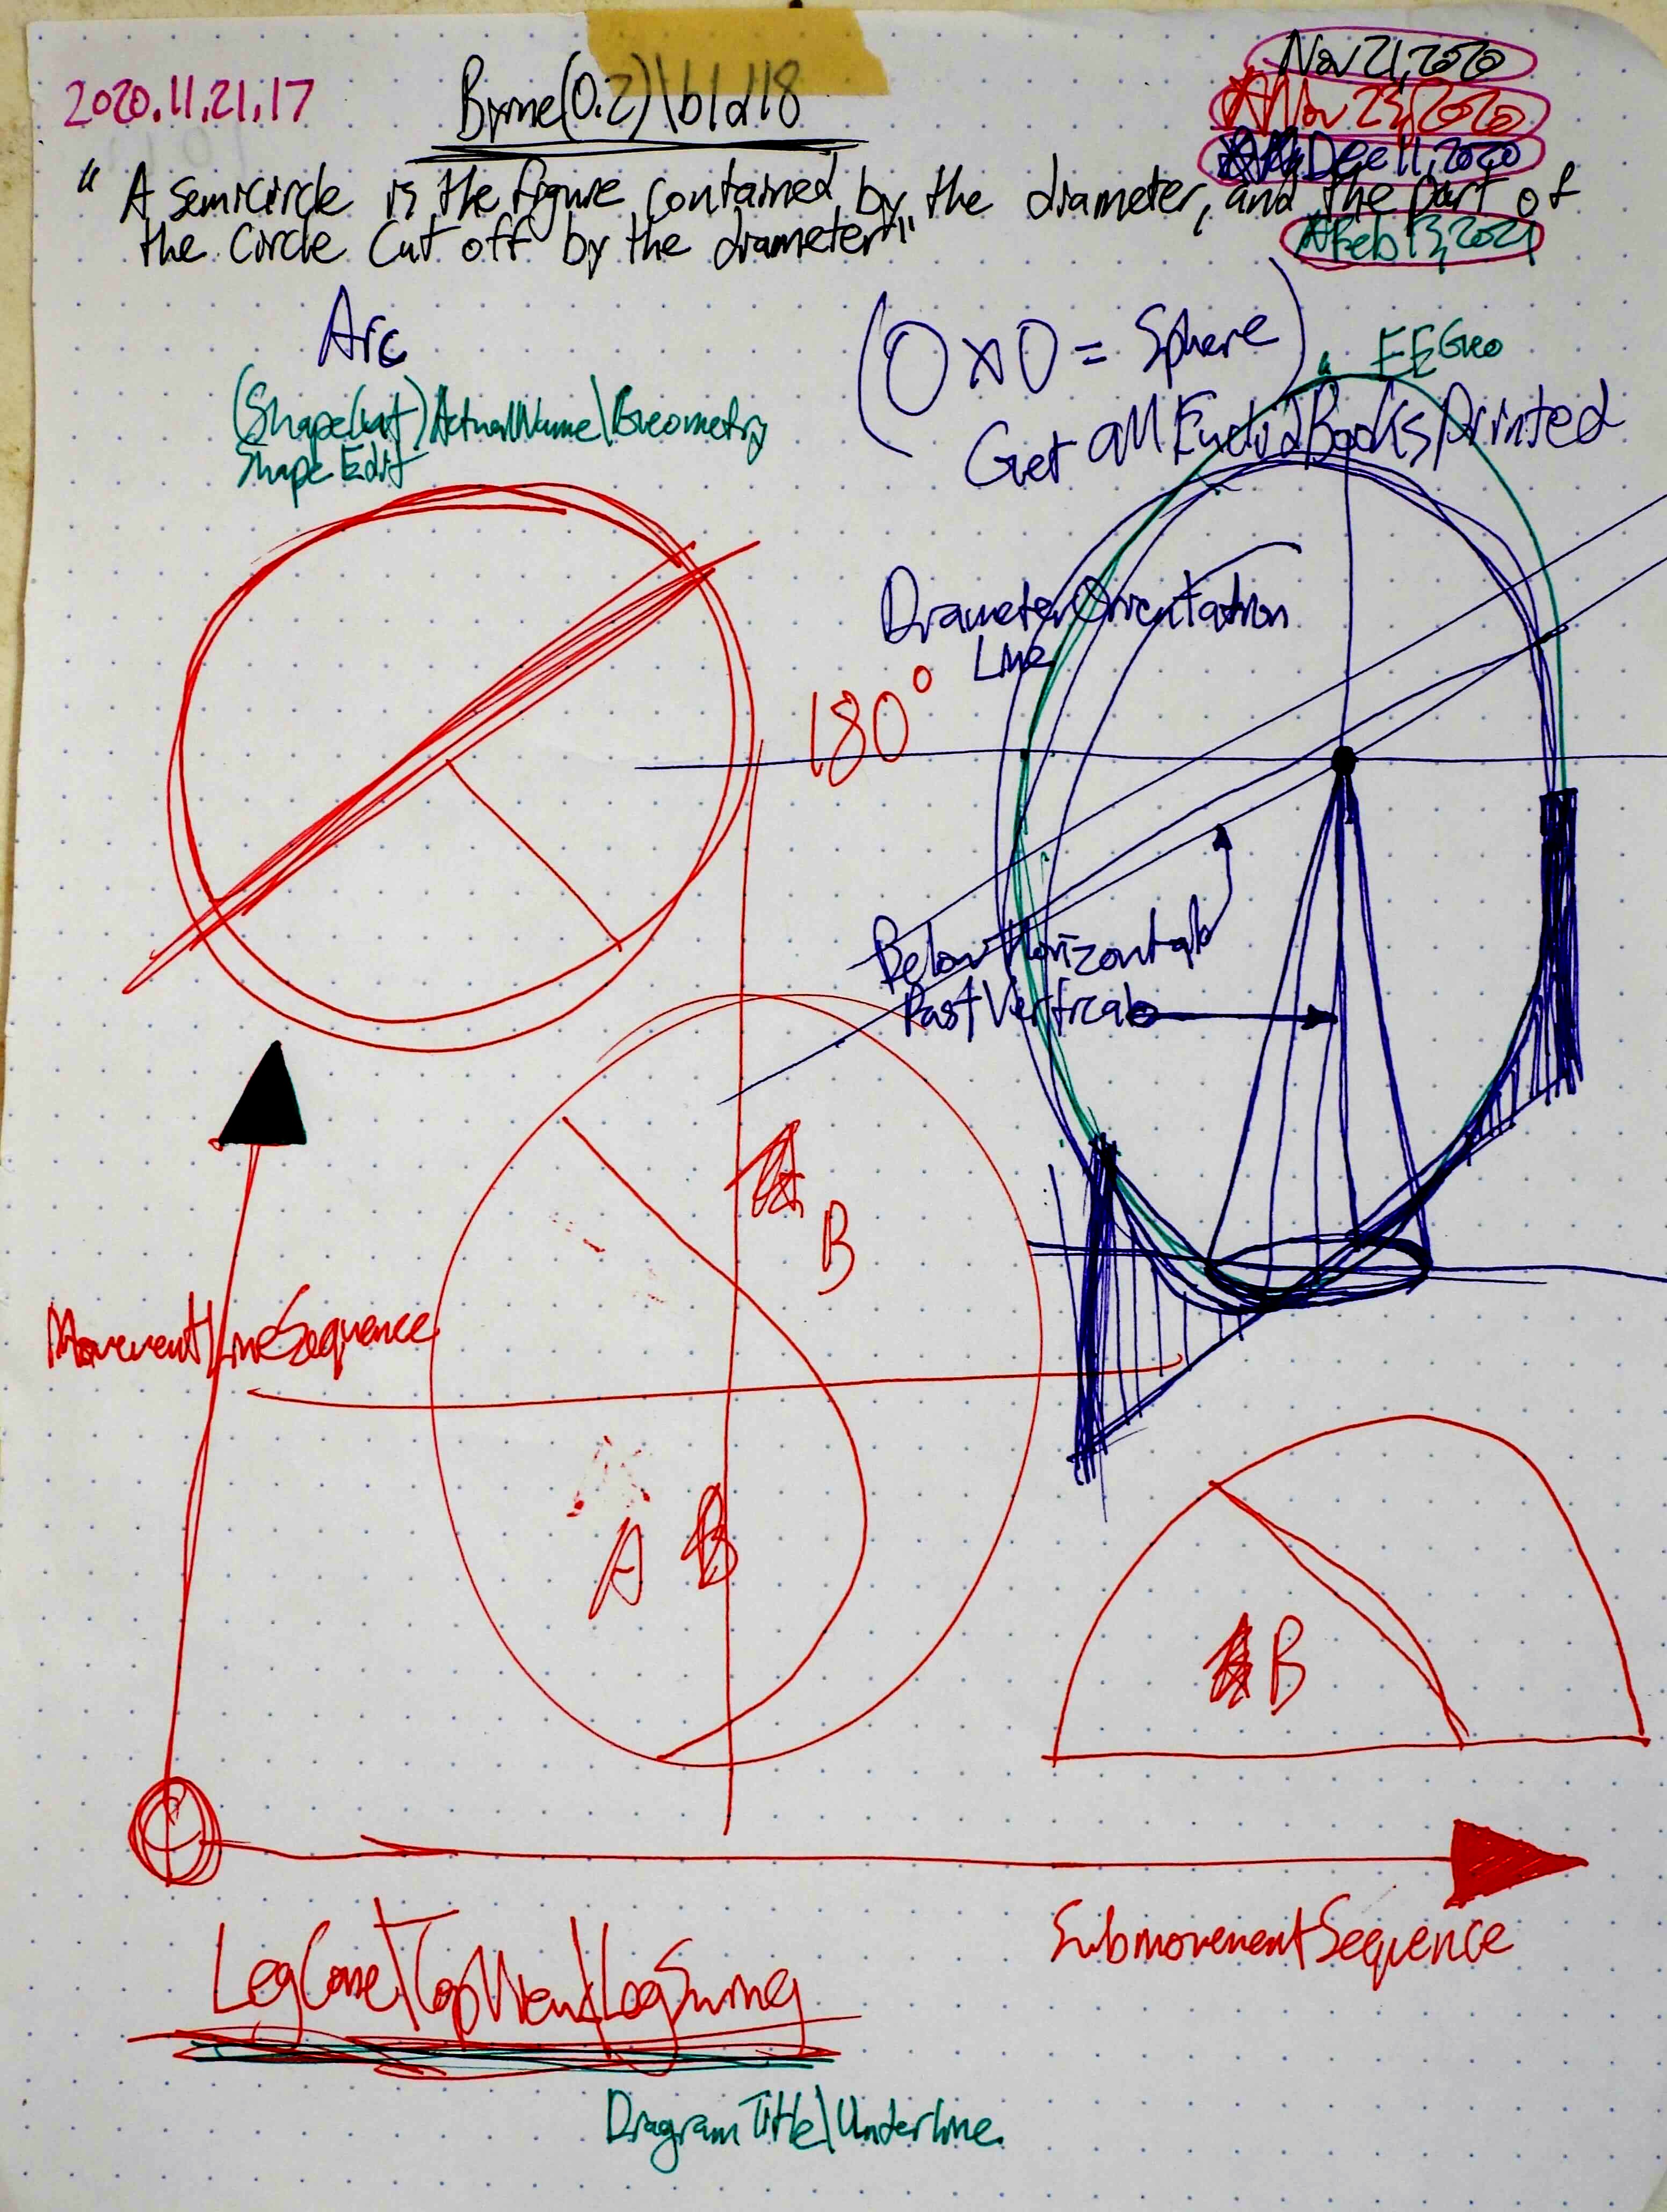 2020.11.21.17
Byrne(0.2)\b1d18
Nov 21, 2020
Nov 23, 2020
Dec 11, 2020
Feb 13, 2021
"A semicircle is the figure contained by the diameter, and the part of
the circle cut off by the diameter"
Arc
(ShapeCut)ActualName\Geometry
ShapeEdit
(O x O = Sphere)
EEGeo
Get all Euclid Books Printed
DiameterOrientation
Line
180°
BelowHorizontal
PastVertical
B
MovementLineSequence
A B
B
SubmovementSequence
LegCone\TopView\LegSwing
DiagramTitle\Underline